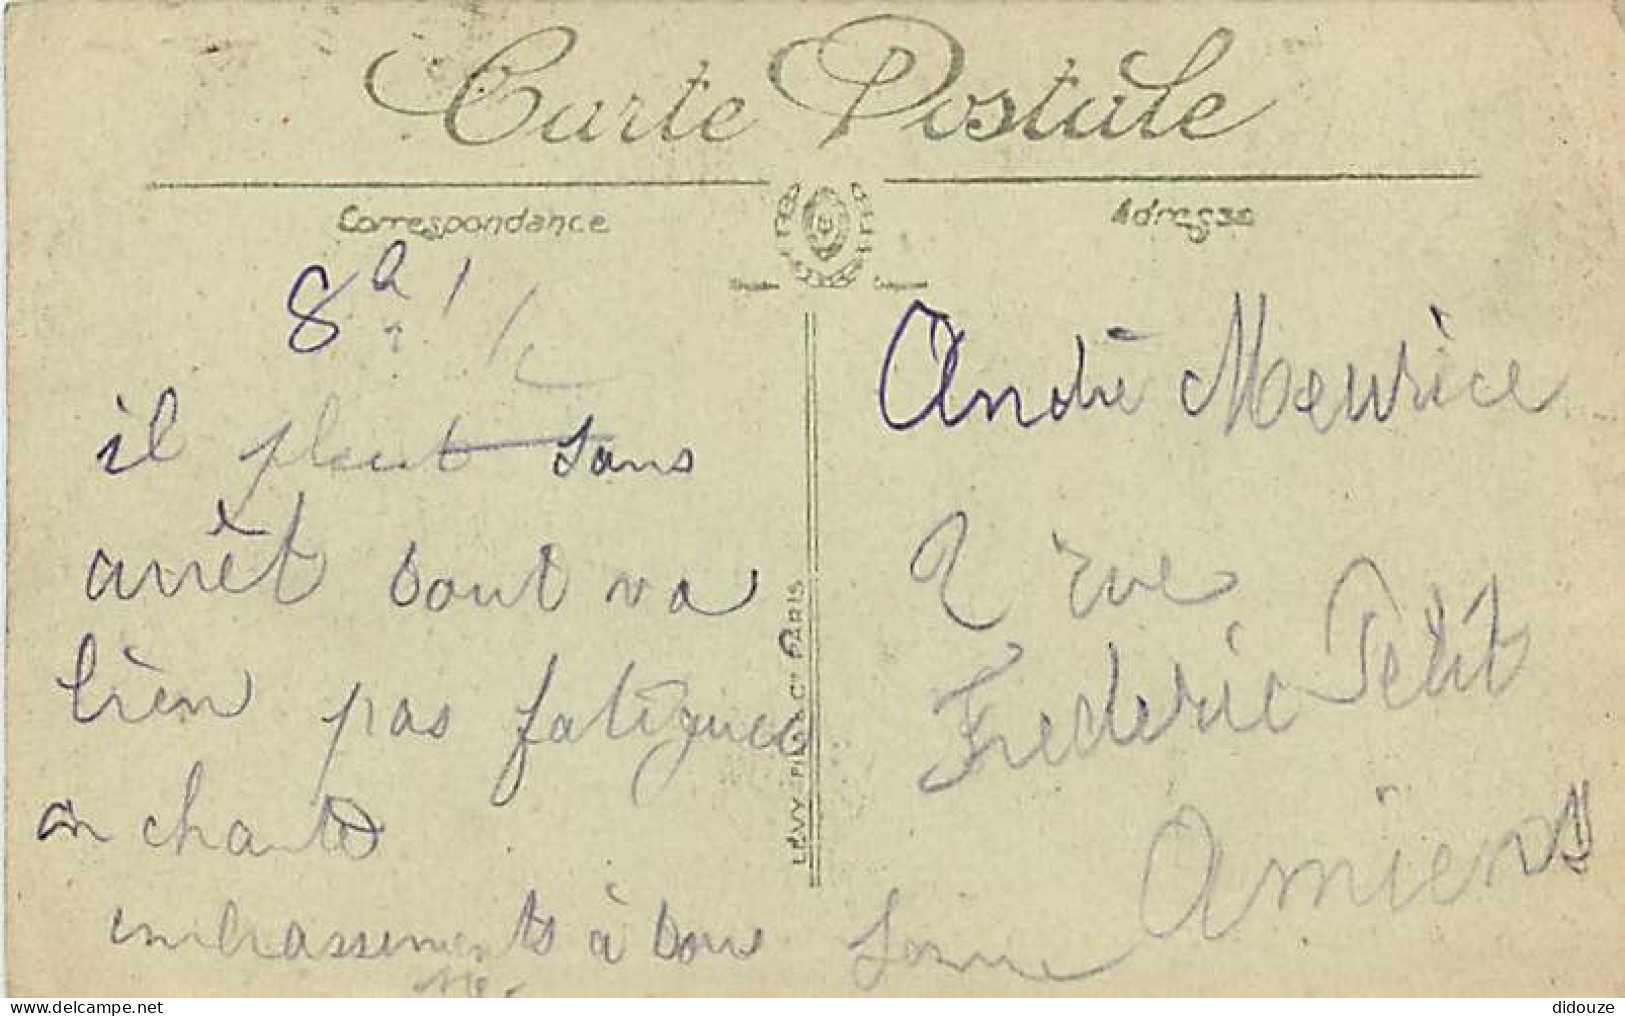 Carte Postale
Correspondance
Adresse
8h 1/2
il pleut sans
arrêt tout va
bien pas fatigués
on chante
embrassements à tous
André Meurice
2 rue
Frederic Petit
Amiens
Somme
LÉVY FILS & Cie PARIS
didouze